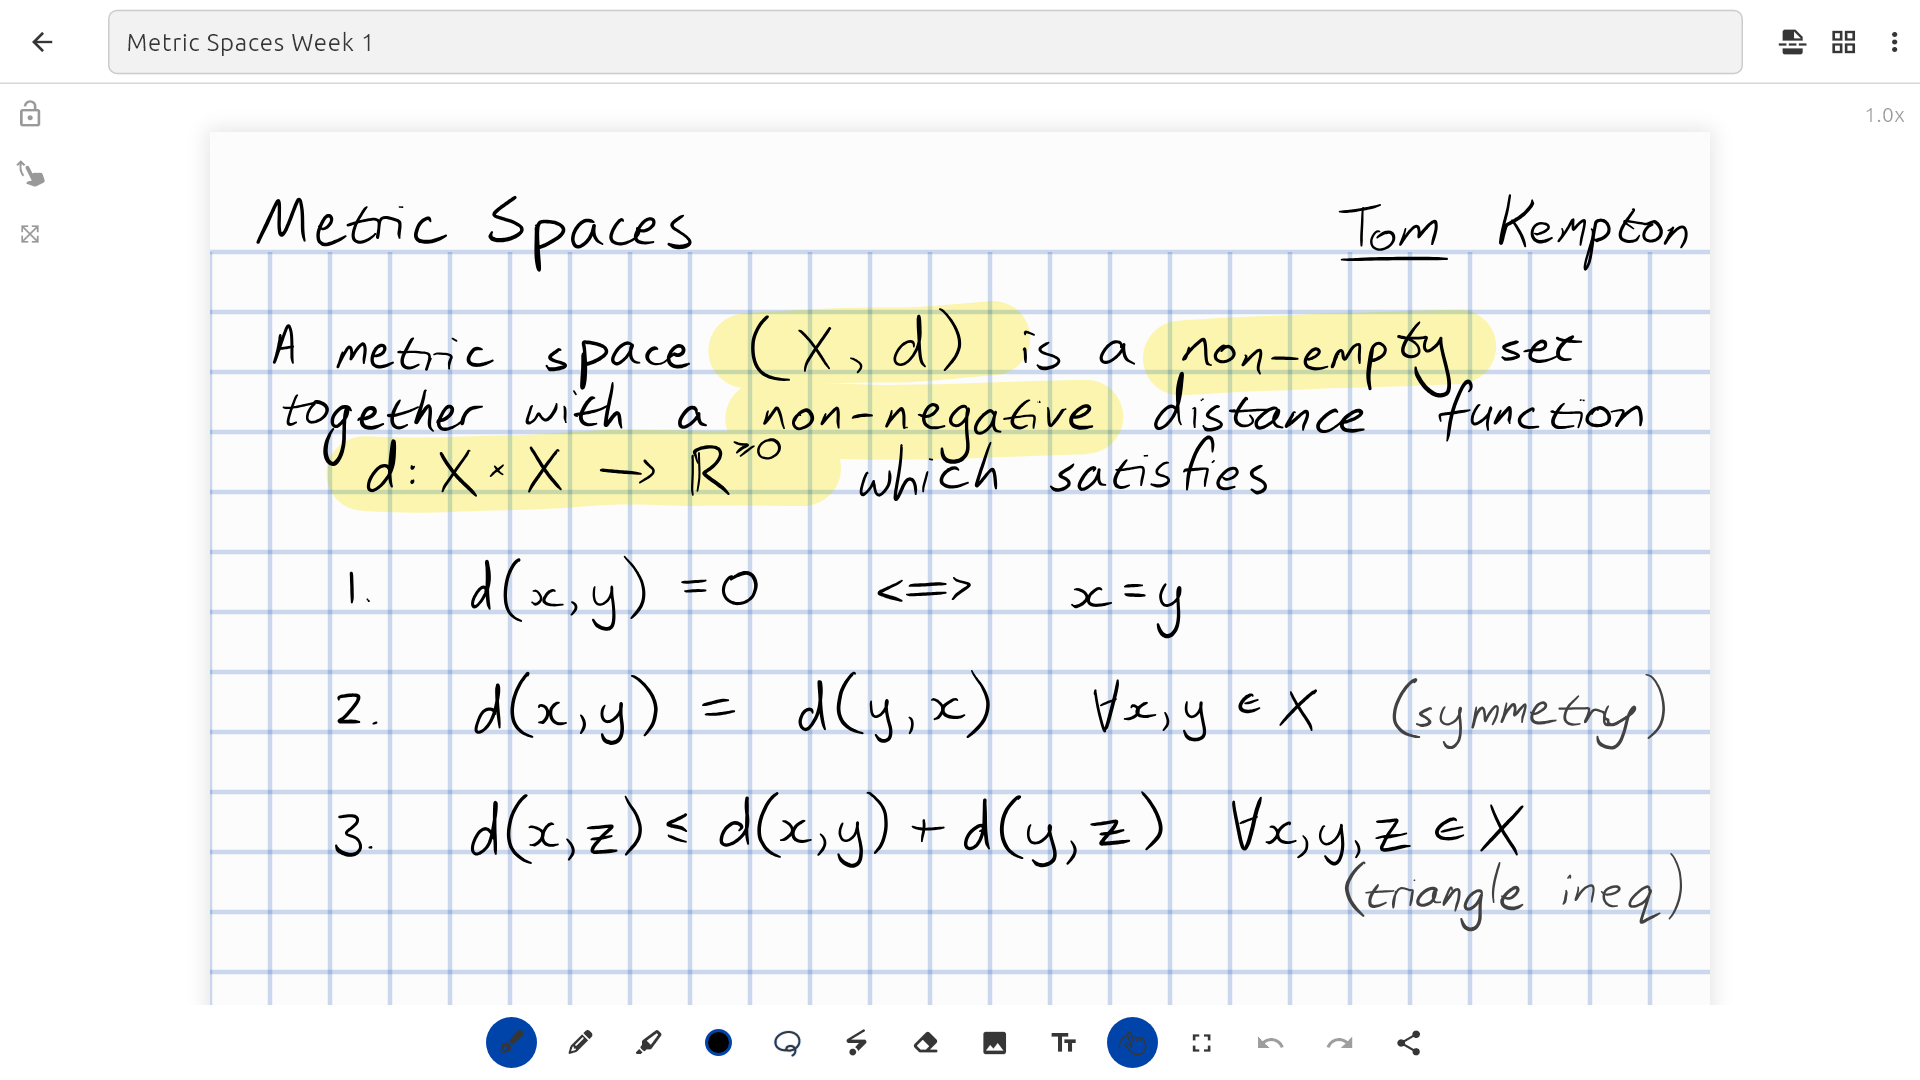 Metric Spaces Week 1
1.0x
Metric Spaces Tom Kempton
A metric space (X, d) is a non-empty set
together with a non-negative distance function
d: X × X → ℝ^≥0 which satisfies
1. d(x,y) = 0 <=> x = y
2. d(x,y) = d(y,x) ∀x,y ∈ X (symmetry)
3. d(x,z) ≤ d(x,y) + d(y,z) ∀x,y,z ∈ X
(triangle ineq)